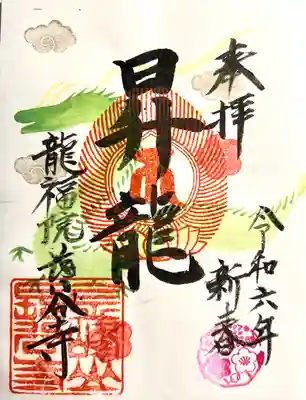 奉拝
令和六年
新春
昇龍
龍福院慈谷寺